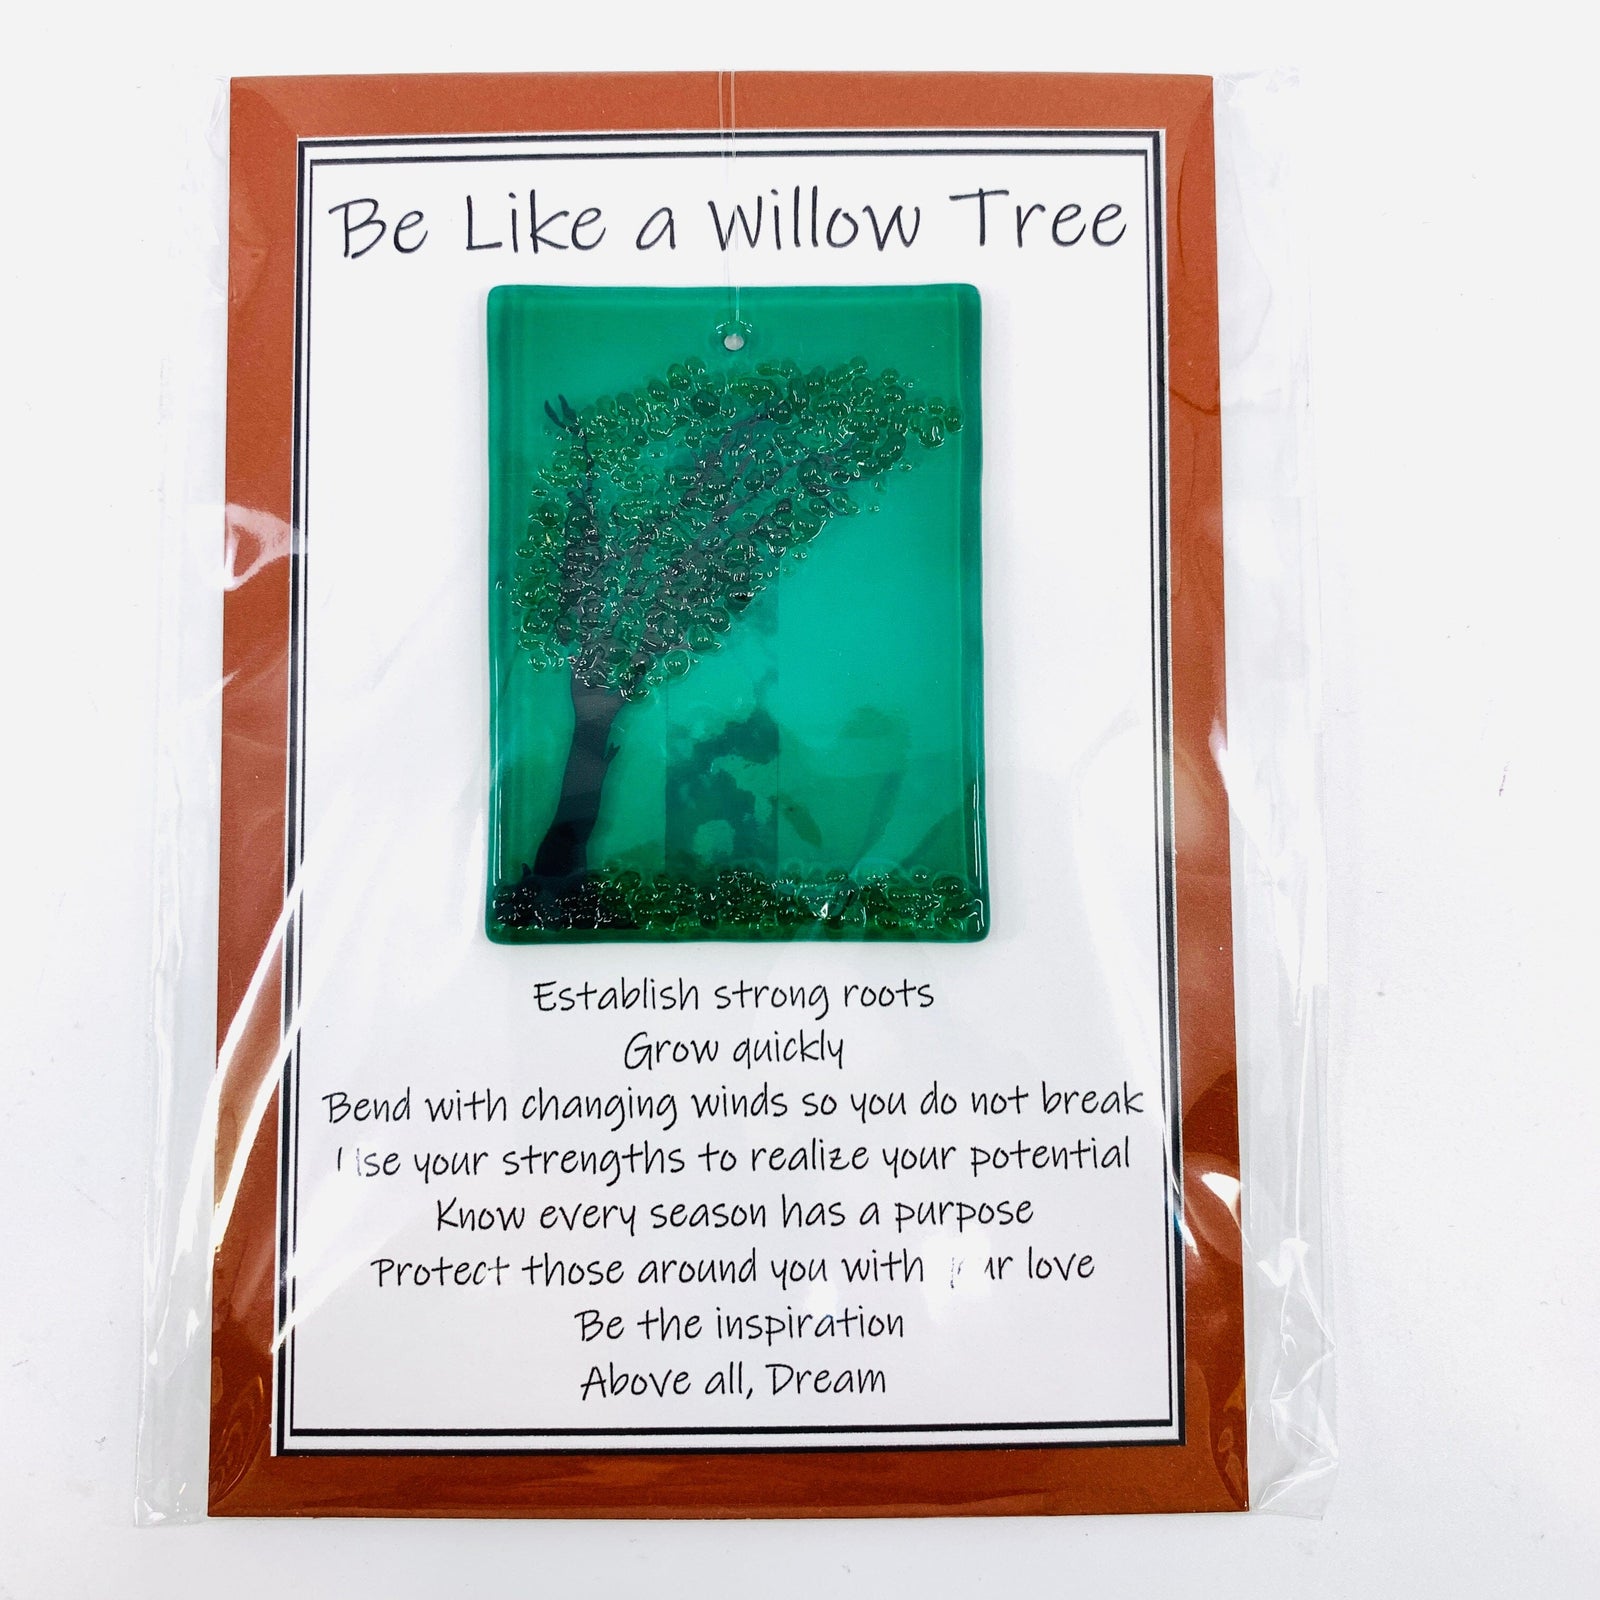 Be Like a Willow Tree
Establish strong roots
Grow quickly
Bend with changing winds so you do not break
Use your strengths to realize your potential
Know every season has a purpose
Protect those around you with your love
Be the inspiration
Above all, Dream